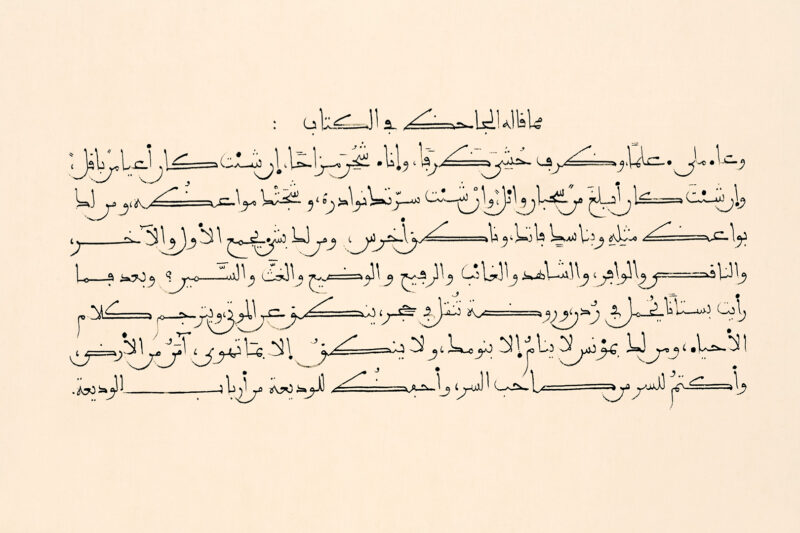 مما قاله الجاحظ في الكتاب :
وعاء ملئ علمًا، وظرف حُشِيَ ظَرفًا، وإناء شُحِنَ مزاحًا، إن شئت كان أعيا من باقل،
وإن شئتَ كان أبلغَ من سحبان وائل، وإن شئت سرّتك نوادره، وشَجَتْك مواعظُه، ومن لك
بواعظ مثلِهِ وبناسكٍ فاتك، وناطق أخرس، ومن لك بشيء يجمع الأول والآخر،
والناقص والوافر، والشاهد والغائب والرفيع والوضيع والغثّ والسَّمين؟ وبعد فما
رأيت بستانًا يُحمل في رُدن، وروضة تُنقل في حجر، ينطق عن الموتى ويترجم كلام
الأحياء، ومن لك بمؤنس لا ينامُ إلا بنومك، ولا ينطقُ إلا بما تهوى، آمنُ من الأرض،
وأكتمُ للسر من صاحب السر، وأحفظُ للوديعة من أرباب الوديعة.